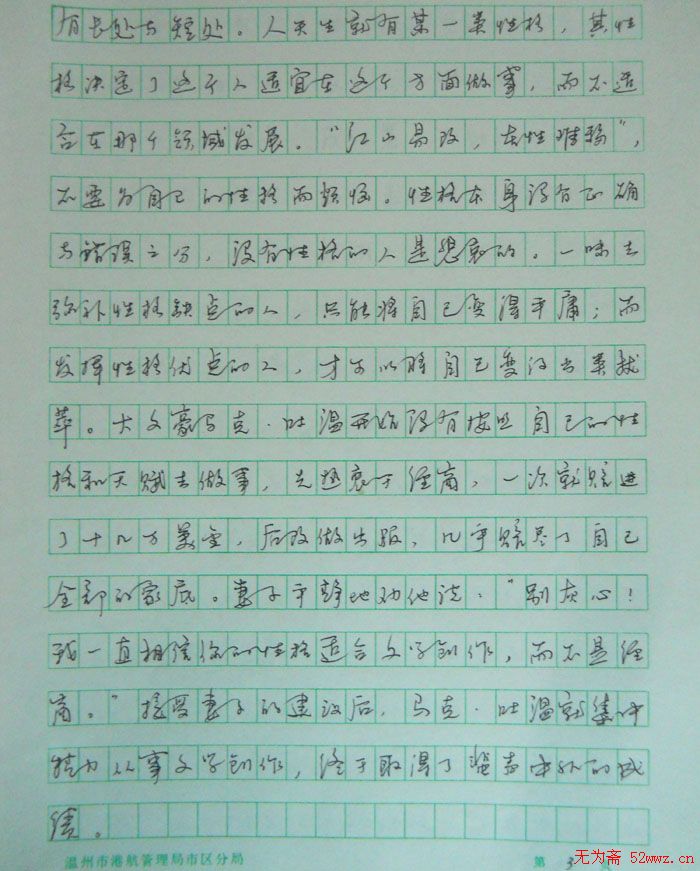 有长处与短处。人天生就有某一类性格，其性
格决定了这个人适宜在这个方面做事，而不适
合在那个领域发展。“江山易改，本性难移”，
不要为自己的性格而烦恼。性格本身没有正确
与错误之分，没有性格的人是悲哀的。一味去
弥补性格缺点的人，只能将自己变得平庸；而
发挥性格优点的人，才可以将自己变得出类拔
萃。大文豪马克·吐温开始没有按照自己的性
格和天赋去做事，先热衷于经商，一次就赔进
了十几万美金，后改做出版，几乎赔尽了自己
全部的家底。妻子平静地劝他说：“别灰心！
我一直相信你的性格适合文学创作，而不是经
商。”接受妻子的建议后，马克·吐温就集中
精力从事文学创作，终于取得了蜚声中外的成
绩。
温州市港航管理局市区分局 第 3 页
无为斋 52wwz.cn